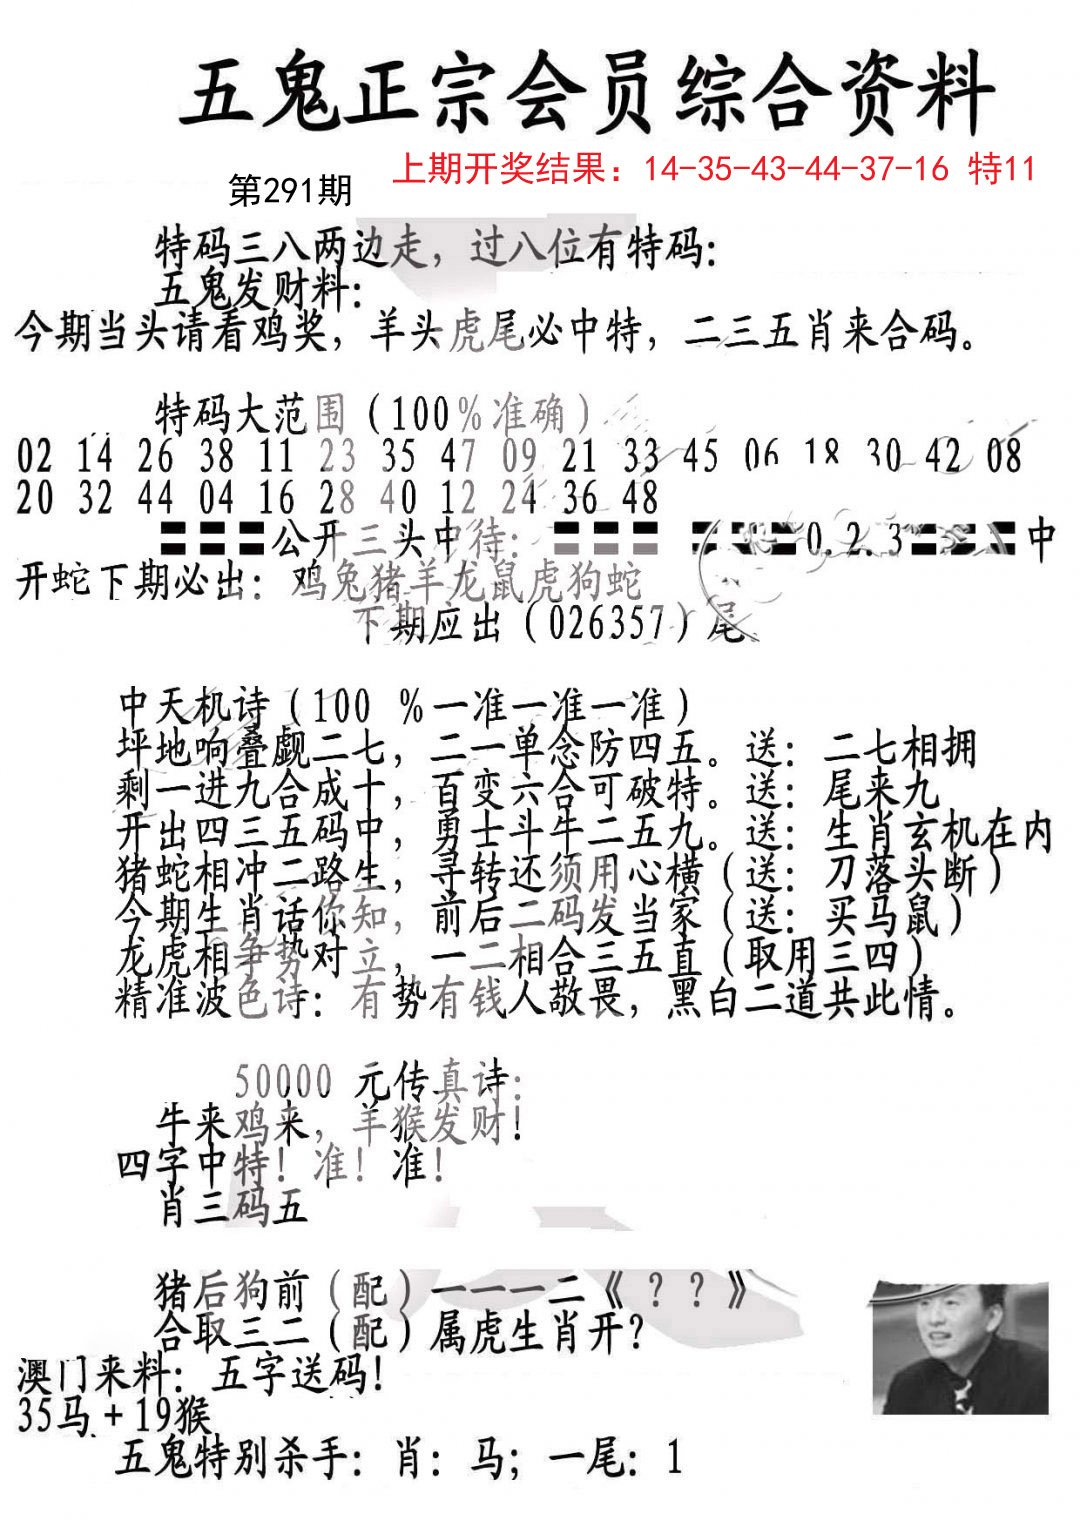 五鬼正宗会员综合资料
上期开奖结果：14-35-43-44-37-16 特11
第291期
特码三八两边走，过八位有特码：
五鬼发财料：
今期当头请看鸡奖，羊头虎尾必中特，二三五肖来合码。
特码大范围（100%准确）
02 14 26 38 11 23 35 47 09 21 33 45 06 18 30 42 08
20 32 44 04 16 28 40 12 24 36 48
〓〓〓公开三头中待：〓〓〓 〓〓〓0.2.3〓〓〓中
开蛇下期必出：鸡兔猪羊龙鼠虎狗蛇
下期应出（026357）尾
中天机诗（100 %一准一准一准）
坪地响叠觑二七，二一单念防四五。送：二七相拥
剩一进九合成十，百变六合可破特。送：尾来九
开出四三五码中，勇士斗牛二五九。送：生肖玄机在内
猪蛇相冲二路生，寻转还须用心横（送：刀落头断）
今期生肖话你知，前后二码发当家（送：买马鼠）
龙虎相争势对立，一二相合三五直（取用三四）
精准波色诗：有势有钱人敬畏，黑白二道共此情。
50000 元传真诗：
牛来鸡来，羊猴发财！
四字中特！准！准！
肖三码五
猪后狗前（配）一一一二《？？》
合取三二（配）属虎生肖开？
澳门来料：五字送码！
35马+19猴
五鬼特别杀手：肖：马；一尾：1